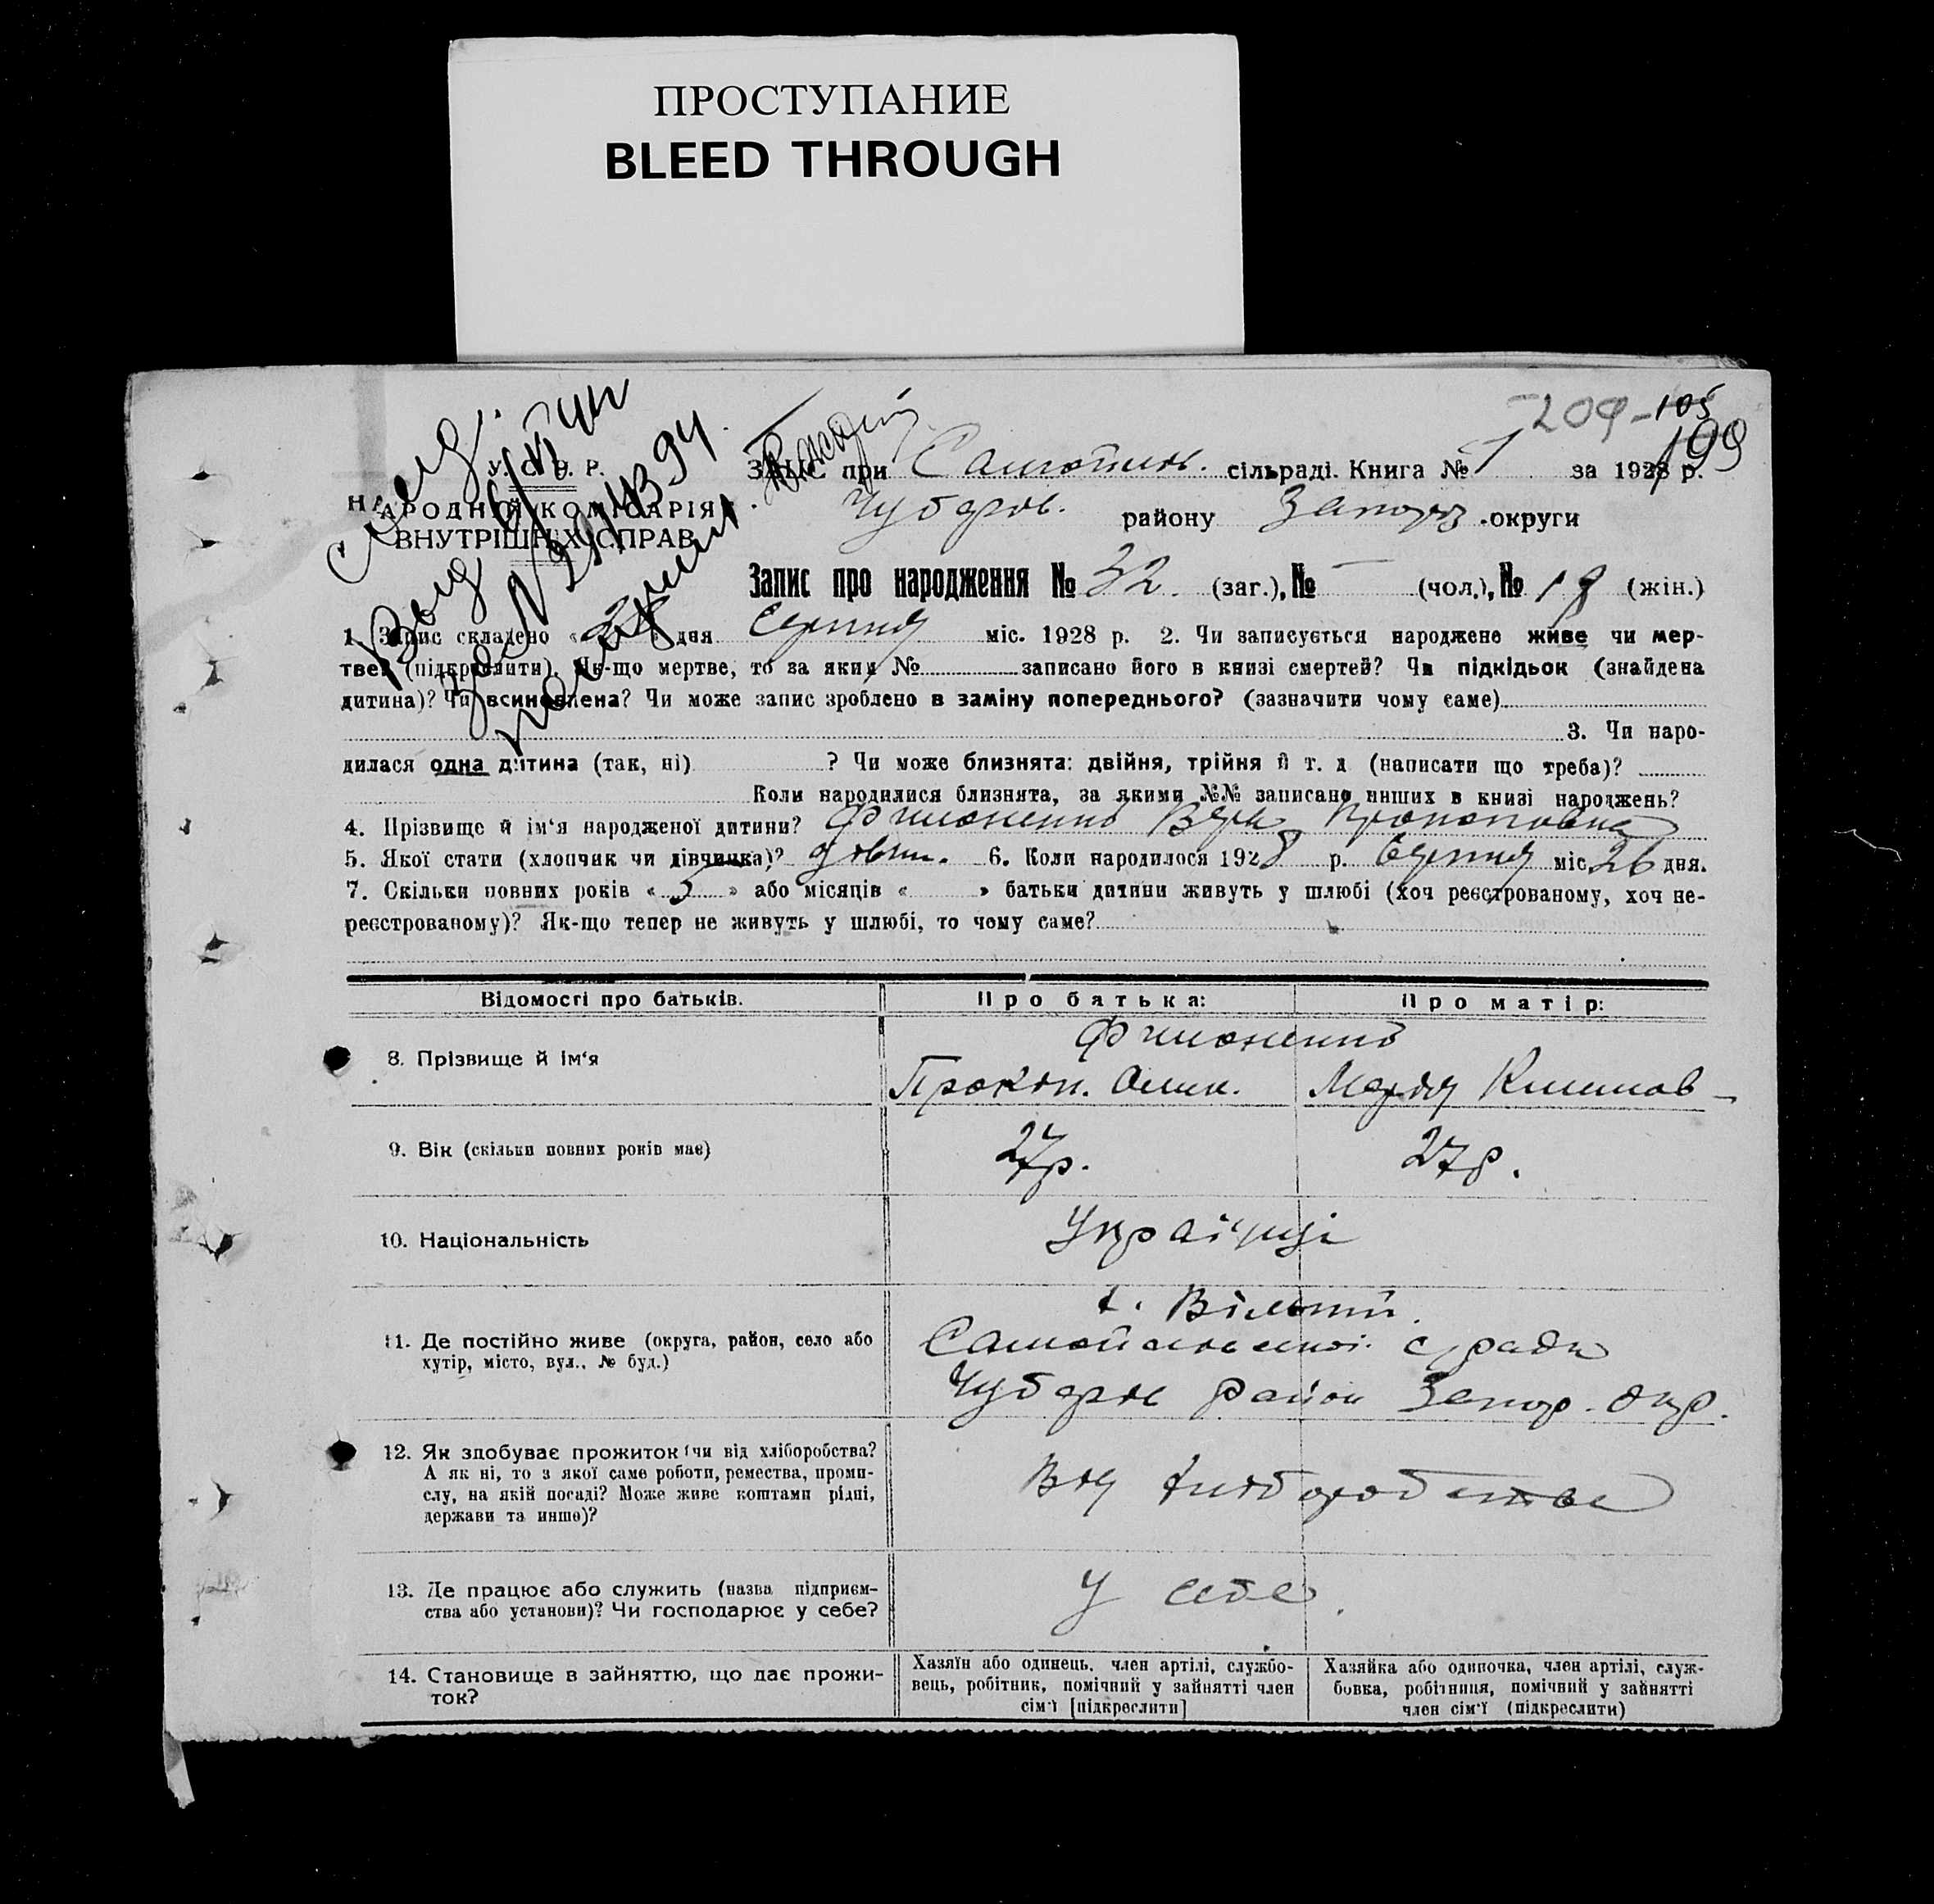 ПРОСТУПАНИЕ
BLEED THROUGH
209-105
199
У. С. Р. Р.
НАРОДНІЙ КОМІСАРІЯТ
ВНУТРІШНІХ СПРАВ
ЗАГС при Самойлов. сільраді. Книга № 1 за 1928 р.
Чубарів. району Запоріз. округи
Запис про народження № 32 (заг.), № — (чол.), № 18 (жін.)
1. Запис складено « 28 » дня Серпня міс. 1928 р. 2. Чи записується народжене живе чи мер-
тве? (підкреслити). Як-що мертве, то за яким № записано його в книзі смертей? Чи підкідьок (знайдена
дитина)? Чи всиновлена? Чи може запис зроблено в заміну попереднього? (зазначити чому саме)
3. Чи наро-
дилася одна дитина (так, ні) ? Чи може близнята: двійня, трійня й т. д (написати що треба)?
Коли народилися близнята, за якими №№ записано инших в книзі народжень?
4. Прізвище й ім'я народженої дитини? Филоненко Віра Прокоповна
5. Якої стати (хлопчик чи дівчинка)? дівчи. 6. Коли народилося 1928 р. Серпня міс 26 дня.
7. Скільки повних років « 5 » або місяців « » батьки дитини живуть у шлюбі (хоч реєстрованому, хоч не-
реєстрованому)? Як-що тепер не живуть у шлюбі, то чому саме?
Відомості про батьків. Про батька: Про матір:
Филоненко
8. Прізвище й ім'я Прокоп. Марія Климов
9. Вік (скільки повних років має) 27р. 27р.
10. Національність Українці
11. Де постійно живе (округа, район, село або
хутір, місто, вул., № буд.)
х. Вільний.
Самойлівської с/ради
Чубарів район Запор. окр.
12. Як здобуває прожиток (чи від хліборобства?
А як ні, то з якої саме роботи, ремества, проми-
слу, на якій посаді? Може живе коштами рідні,
держави та инше)?
Від хліборобства
13. Де працює або служить (назва підприєм-
ства або установи)? Чи господарює у себе?
У себе.
14. Становище в зайняттю, що дає прожи-
ток?
Хазяїн або одинець, член артілі, службо-
вець, робітник, помічний у зайнятті член
сім'ї [підкреслити]
Хазяйка або одиночка, член артілі, служ-
бовка, робітниця, помічний у зайнятті
член сім'ї (підкреслити)